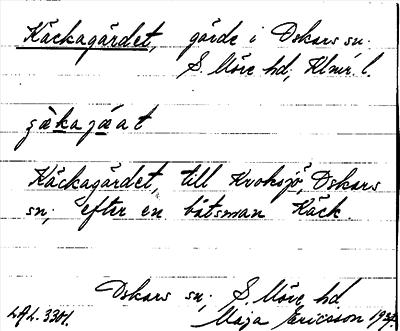 Käckagärdet, gärde i Oskars sn.
S. Möre hd, Klmr. l.
Käckagärdet, till Kroksjö, Oskars
sn, efter en båtsman Käck.
Oskars sn, S. Möre hd.
LAL. 3301. Maja Ericsson